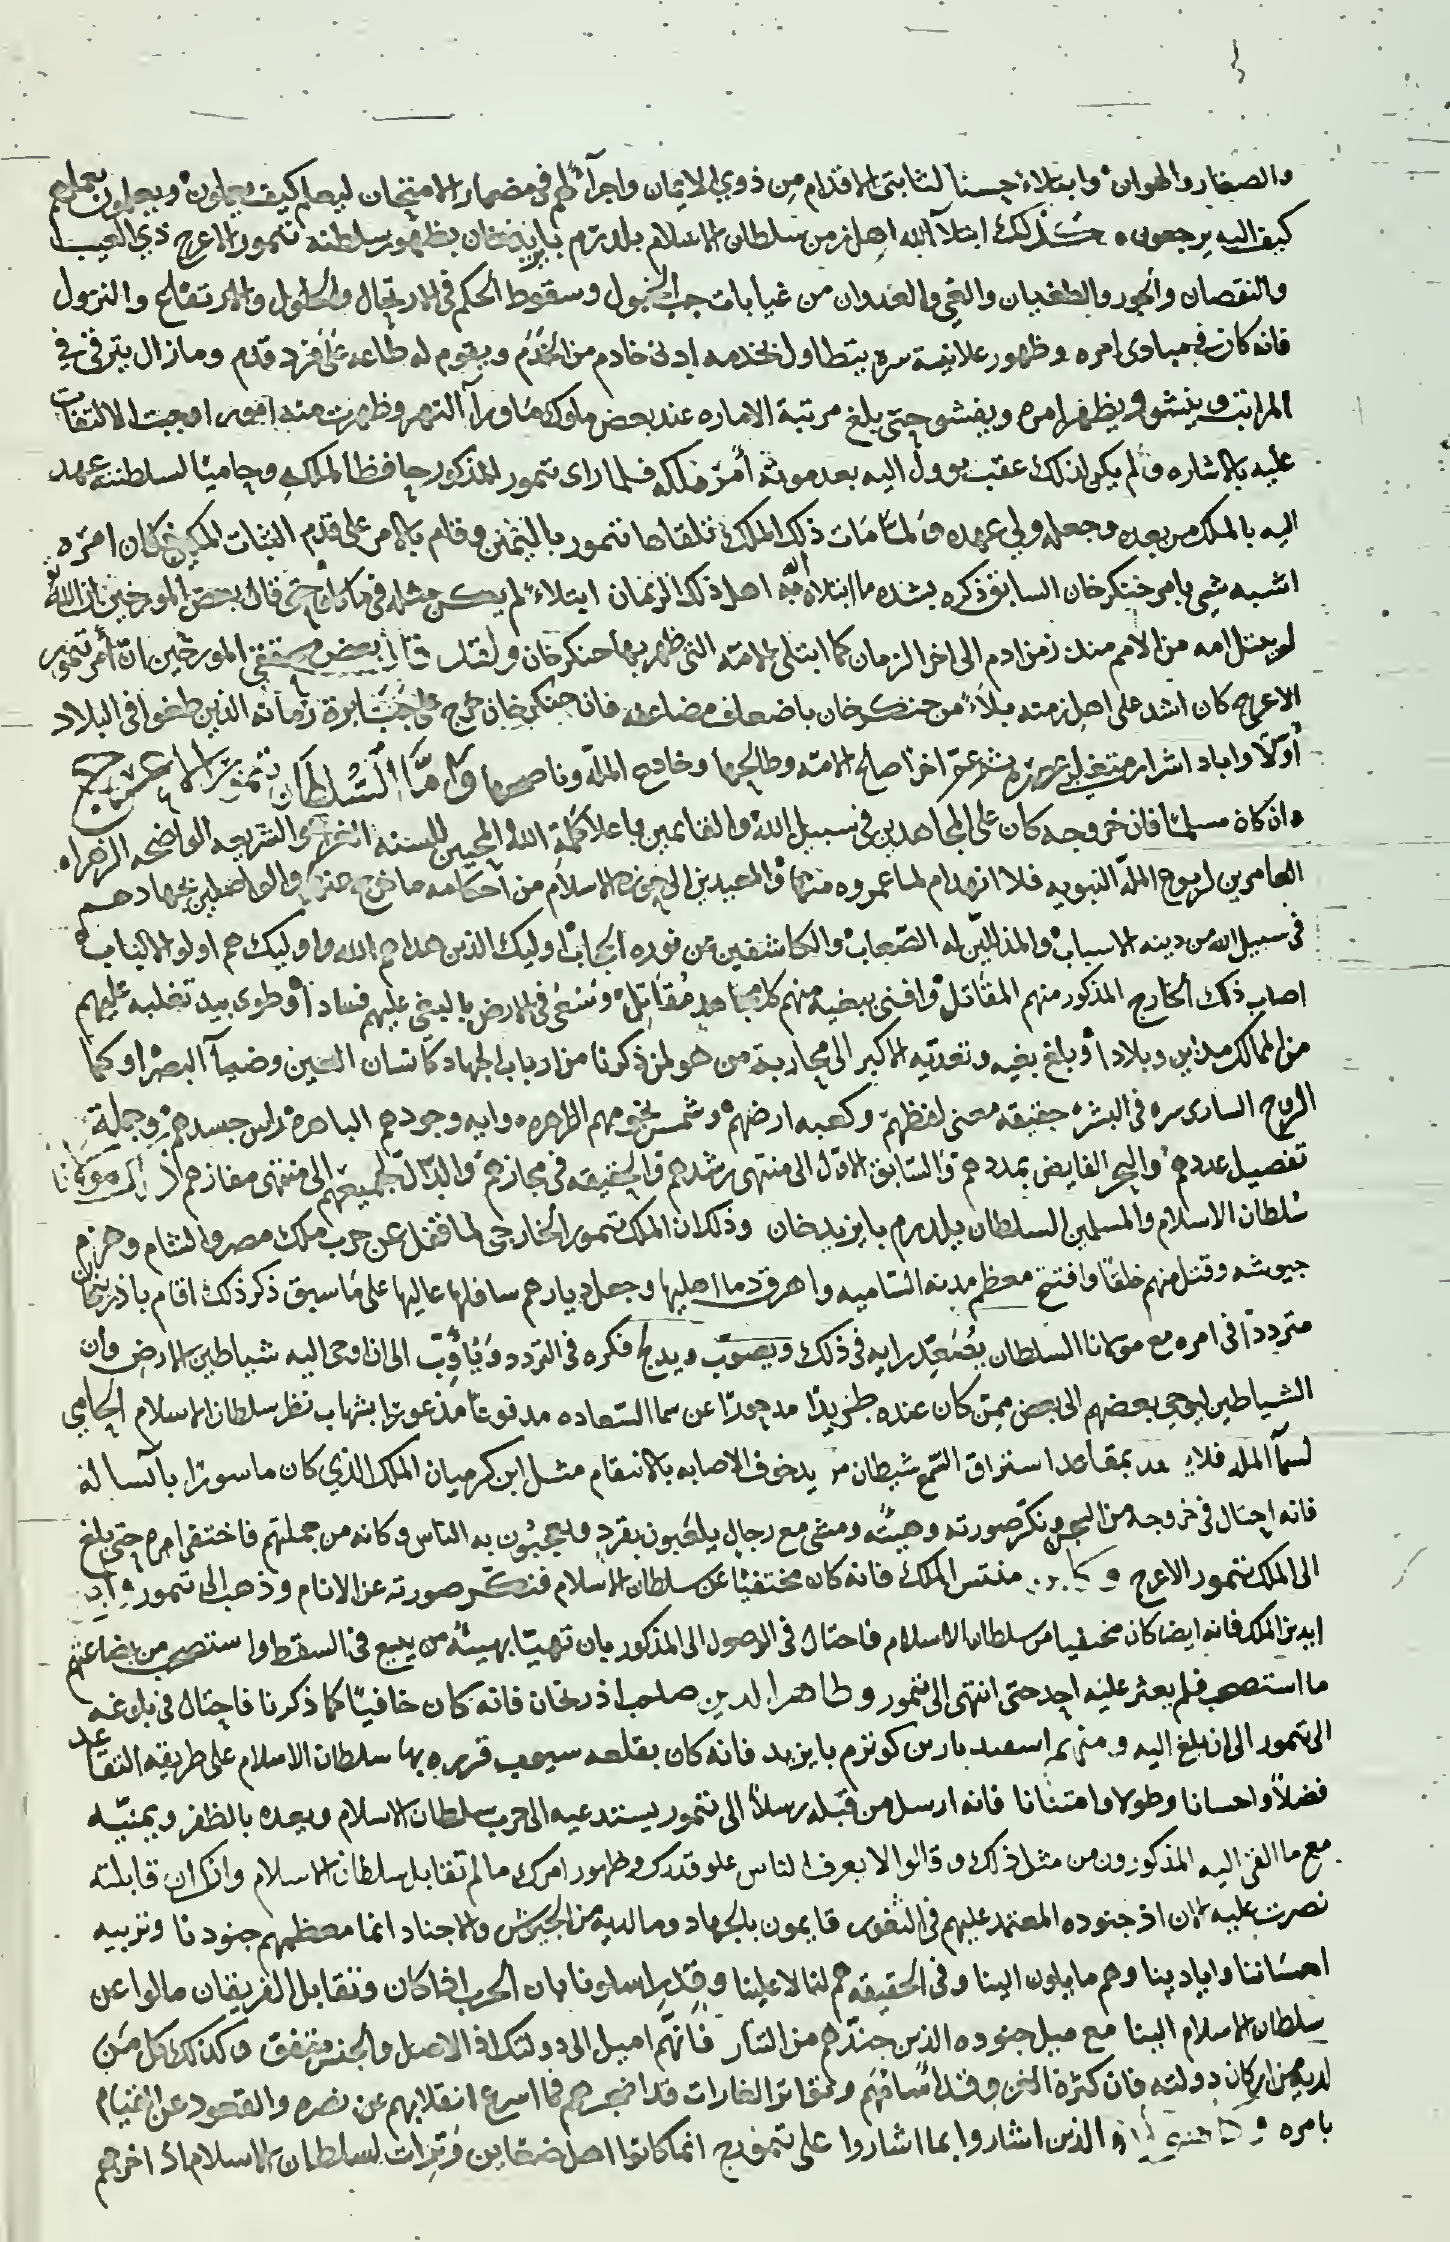 والصغار والهوان وابتلاء حسنا لثابتى الاقدام من ذوي الايمان واجراء لهم فى مضمار الامتحان ليعلم كيف يعملون ويعملون بعملهم
كيف اليه يرجعون كذلك ابتلا الله اهل زمن سلطان الاسلام يلدرم بايزيدخان بظهور سلطنه تتمور الاعرج ذي العيب
والنقصان والجور والطغيان والغي والعدوان من غيابات جب الخمول وسقوط الحكم فى الارتحال والحلول والارتفاع والنزول
فانه كان فى مبادى امره وظهور علانية سره يتطاول لخدمه ادنى خادم من الخدم ويقوم له طاعه على فرد قدم وما زال يترقى فى
المراتب وينشو ويظهر امره ويفشو حتى بلغ مرتبة الاماره عند بعض ملوك ماورآ النهر وظهرت منه امور اوجبت الالتفات
عليه بالاشاره ولم يكن لذلك عقب يوول اليه بعد موته أمر ملكه فلما راى تتمور المذكور حافظا لملكه وحاميا لسلطنته عهد
اليه بالملك من بعده وجعله ولي عهده ولما مات ذلك الملك تلقاها تتمور باليمن وقام بالامر على قدم الثبات المكين كان امره
اشبه شى بامر جنكزخان السابق ذكره بشده ما ابتلا الله به اهل ذلك الزمان ابتلاء لم يكن مثله فى ما كان حتى قال بعض المورخين ان الله
لم يبتل امه من الامم منذ زمن ادم الى اخر الزمان كما ابتلى الامه التى ظهر بها جنكزخان ولقد قال بعض المورخين ان أمر تتمور
الاعرج كان اشد على اهل زمنه بلاء من جنكزخان باضعاف مضاعفه فان جنكزخان خرج على جبابرة زمانه الذين طغوا فى البلاد
أولا واباد اشرار اخرا صالح الامه وطالحها وخادع الملة وناصحها وأما السلطان تتمور الاعرج
وان كان مسلما فان خروجه كان على المجاهدين فى سبيل الله والقايمين باعلا كلمة الله والمحيين للسنه الغرا والشريعه الواضحه الزهراء
العامرين لربوع الملة النبويه فلا انهدام لما عمروه منها والمعيدين الى حوزه الاسلام من احكامه ما خرج عنها والواصلين بجهادهم
فى سبيل الله من دينه الاسباب والمذللين له الصعاب والكاشفين عن نوره الحجاب اوليك الذين هداهم الله واوليك هم اولو الالباب
اصاب ذلك الخارج المذكور منهم المقاتل وافنى ببغيه منهم كل مجاهد مقاتل وسعى فى الارض بالبغي عليهم فسادا وطوى بيد تغلبه عليهم
من الممالك مداين وبلادا وبلغ بغيه وتعديه الاكبر الى محاربة من هو لمن ذكرنا من ارباب الجهاد كانسان العين وضيآ البصر او كما
الروح السارى سره فى البشر حقيقه معنى لفظهم وكعبه ارضهم وشمس نجومهم الزاهره وايه وجودهم الباهره راس جسدهم وجملة
تفصيل عددهم والبحر الفايض بمددهم والسابق الاول الى منتهى رشدهم والحقيقه فى مجازهم والدال لجميعهم الى منتهى مفازهم مولانا
سلطان الاسلام والمسلمين السلطان يلدرم بايزيدخان وذلك ان الملك تتمور الخارجى لما قفل عن حرب ملك مصر والشام وهزم
جيوشه وقتل منهم خلقا وافتتح معظم مدنه الشاميه واهرق دما اهليها وجعل ديارهم سافلها عاليها على ما سبق ذكر ذلك اقام باذربيجان
مترددا فى امره مع مولانا السلطان يصعد رايه فى ذلك ويصوب ويدلج فكره فى التردد ويأوب الى ان اوحى اليه شياطين الارض وان
الشياطين ليوحي بعضهم الى بعض ممن كان عنده طريدا مدحورا عن سما السعاده مدفوعا مذعورا بشهاب نظر سلطان الاسلام الحامي
لسمآ المله بمقاعد استراق السمع شيطان مريد خوف الاصابه بالانتقام مثل ابن كرميان الملك الذي كان ماسورا
فانه احتال فى خروجه من السجن ونكر صورته وهيئه ومشى مع رجال يلعبون بقرد ويعجبون به الناس وكانه من جملتهم فاختفى امره حتى بلغ
الى الملك تتمور الاعرج منتس الملك فانه كان مختفيا عن سلطان الاسلام فنكر صورته عن الانام وذهب الى تتمور
ايدين الملك فانه ايضا كان مختفيا من سلطان الاسلام فاحتال فى الوصول الى المذكور بان تهيا بهيئه من يبيع فى السقط واستصحب من بضاعتهم
ما استصحب فلم يعثر عليه احد حتى انتهى الى تتمور وطاهر الدين صاحب اذربجان فانه كان خافيا كما ذكرنا فاحتال فى بلوغه
الى تتمور الى ان بلغ اليه ومنهم اسفنديار بن كوترم بايزيد فانه كان بقلعه سينوب قرره بها سلطان الاسلام على طريقه التقاعد
فضلا واحسانا وطولا وامتنانا فانه ارسل من قبله رسلا الى تتمور يستدعيه الى حرب سلطان الاسلام ويعده بالظفر ويمنيه
مع ما القى اليه المذكورون من مثل ذلك وقالوا لا يعرف الناس علو قدرك وظهور امرك ما لم تقابل سلطان الاسلام وانك ان قابلته
نصرت عليه الان اذ جنوده المعتمد عليهم فى الثغور قايمون بالجهاد وما لديه من الجيوش والاجناد انما معظمهم جنودنا وتربيه
احساننا وايادينا وهم مايلون الينا وفى الحقيقه هم لنا لا علينا وقد راسلونا بان الحرب اذا كان وتقابل الفريقان مالوا عن
سلطان الاسلام الينا مع ميل جنوده الذين جندهم من التتار فانهم اميل الى دولتك اذ الاصل والجنس متفق وكذلك كل من
لديه من اركان دولته فان كثرة الغزو قد أسافهم وتواتر الغارات قد اضجرهم فما اسرع انقلابهم عن نصره والقعود عن القيام
بامره الذين اشاروا بما اشاروا على تتمورج انما كانوا اهل ضغاين وترات لسلطان الاسلام اذ اخرجهم